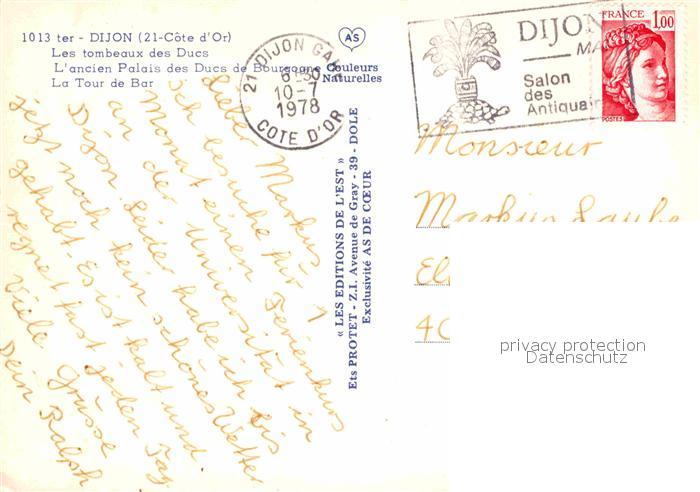 1013 ter - DIJON (21-Côte d'Or)
Les tombeaux des Ducs
L'ancien Palais des Ducs de Bourgogne
La Tour de Bar
AS
Couleurs
Naturelles
21 DIJON GARE
6 30
10-7
1978
COTE D'OR
DIJON
MA
Salon
des
Antiquai
FRANCE
1,00
POSTES
Lieber Markus
Ich besuche für 1
Monat einen Ferienkurs
an der Universität in
Dijon. Leider habe ich bis
jetzt noch kein schönes Wetter
gehabt. Es ist kalt und
regnet fast jeden Tag
Viele Grüsse
Dein Ralph
« LES EDITIONS DE L'EST »
Ets PROTET - Z.I. Avenue de Gray - 39 - DOLE
Exclusivité AS DE CŒUR
Monsieur
Markus
El
40
privacy protection
Datenschutz